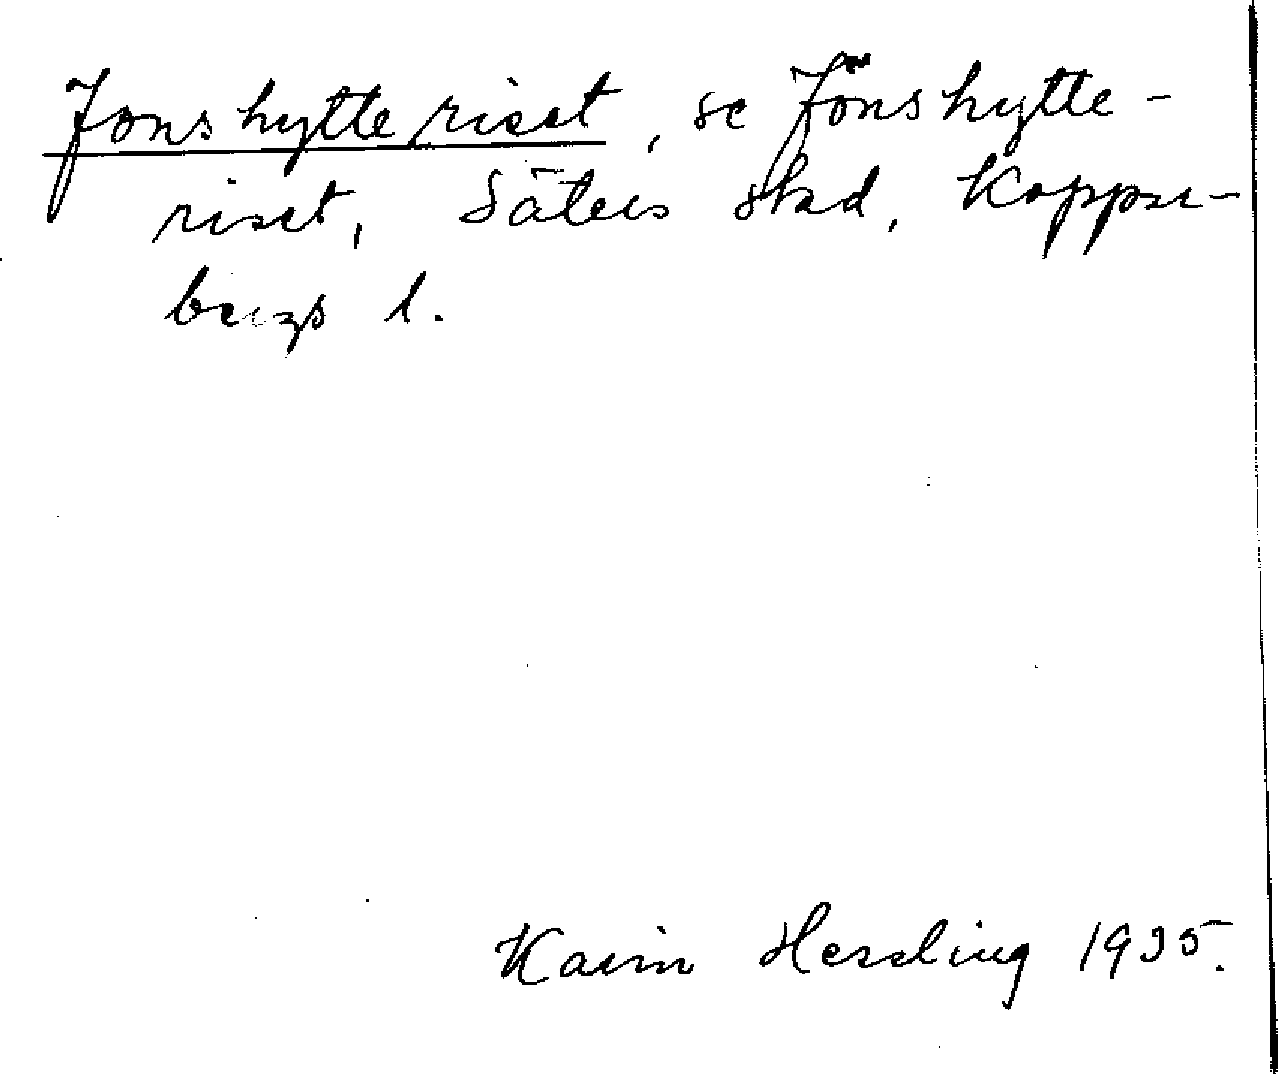 Jonshytteriset, se Jönshytte-
riset, Säters stad, Koppar-
bergs l.
Karin Hesling 1935.